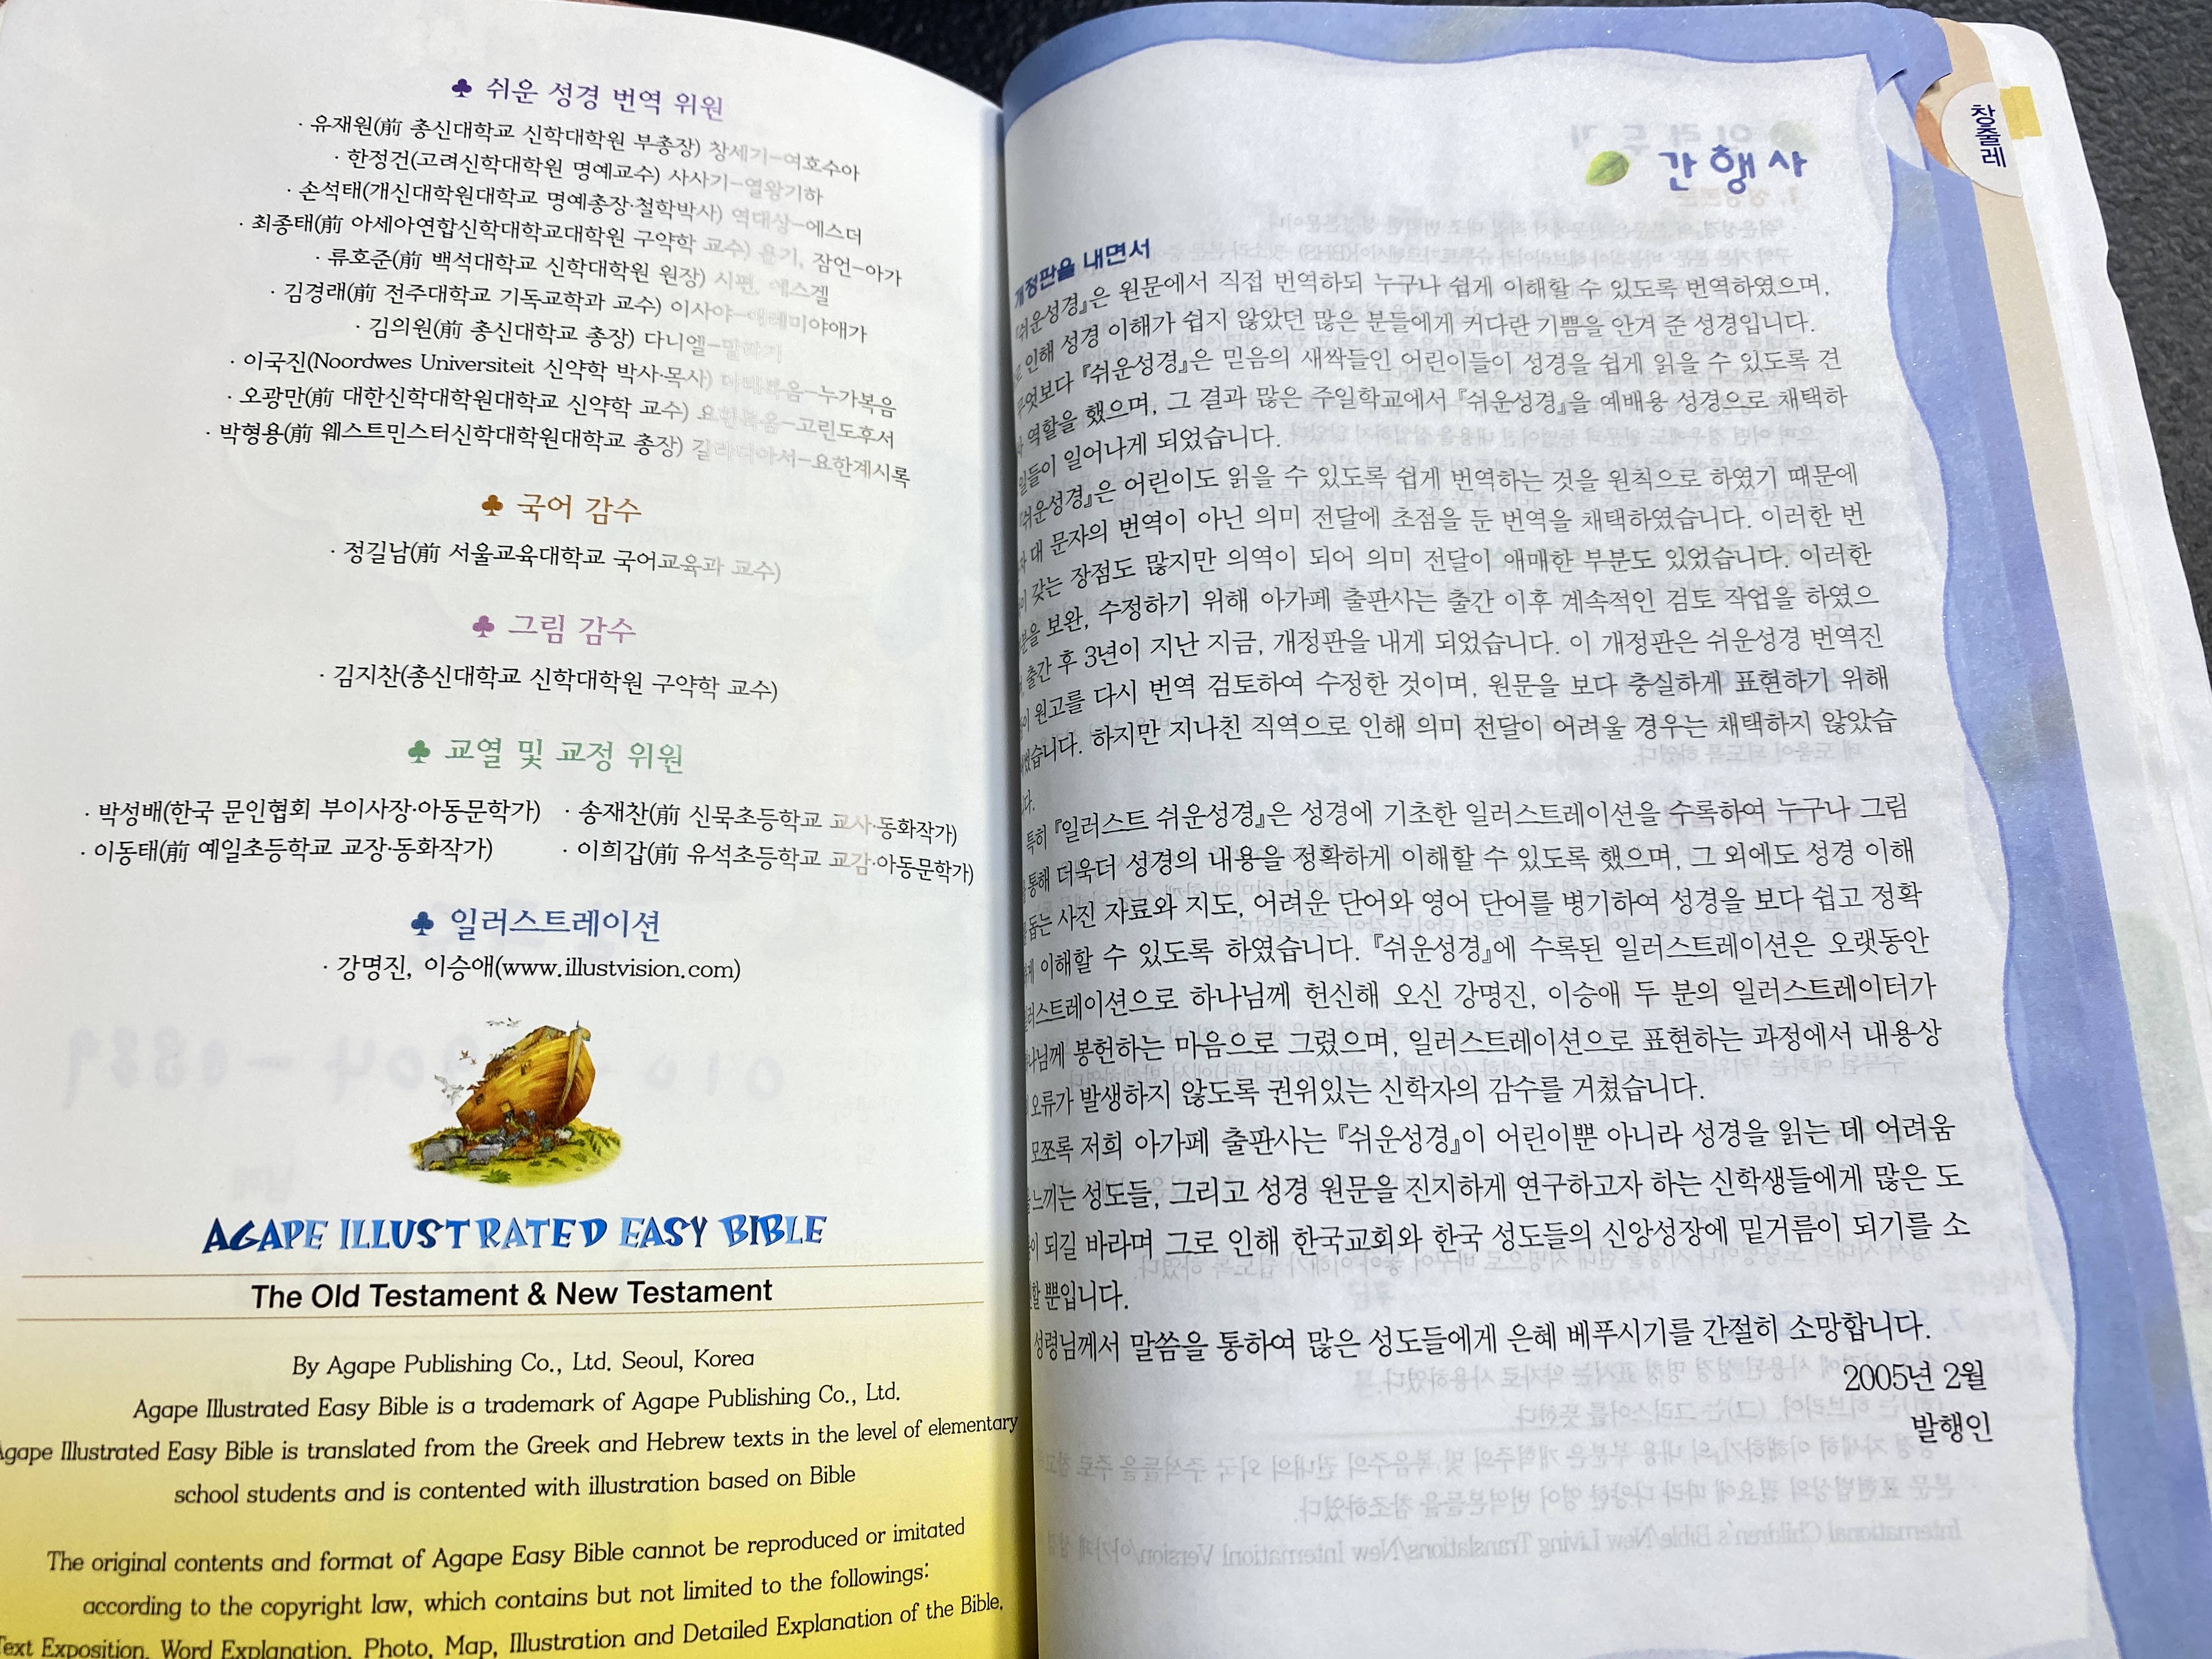 ♣ 쉬운 성경 번역 위원
· 유재원(前 총신대학교 신학대학원 부총장) 창세기-여호수아
· 한정건(고려신학대학원 명예교수) 사사기-열왕기하
· 손석태(개신대학원대학교 명예총장·철학박사) 역대상-에스더
· 최종태(前 아세아연합신학대학교대학원 구약학 교수) 욥기, 잠언-아가
· 류호준(前 백석대학교 신학대학원 원장) 시편, 에스겔
· 김경래(前 전주대학교 기독교학과 교수) 이사야-예레미야애가
· 김의원(前 총신대학교 총장) 다니엘-말라기
· 이국진(Noordwes Universiteit 신약학 박사·목사) 마태복음-누가복음
· 오광만(前 대한신학대학원대학교 신약학 교수) 요한복음-고린도후서
· 박형용(前 웨스트민스터신학대학원대학교 총장) 갈라디아서-요한계시록
♣ 국어 감수
· 정길남(前 서울교육대학교 국어교육과 교수)
♣ 그림 감수
· 김지찬(총신대학교 신학대학원 구약학 교수)
♣ 교열 및 교정 위원
· 박성배(한국 문인협회 부이사장·아동문학가) · 송재찬(前 신묵초등학교 교사·동화작가)
· 이동태(前 예일초등학교 교장·동화작가) · 이희갑(前 유석초등학교 교감·아동문학가)
♣ 일러스트레이션
· 강명진, 이승애(www.illustvision.com)
AGAPE ILLUSTRATED EASY BIBLE
The Old Testament & New Testament
By Agape Publishing Co., Ltd. Seoul, Korea
Agape Illustrated Easy Bible is a trademark of Agape Publishing Co., Ltd.
Agape Illustrated Easy Bible is translated from the Greek and Hebrew texts in the level of elementary
school students and is contented with illustration based on Bible
The original contents and format of Agape Easy Bible cannot be reproduced or imitated
according to the copyright law, which contains but not limited to the followings:
Text Exposition, Word Explanation, Photo, Map, Illustration and Detailed Explanation of the Bible,
간행사
개정판을 내면서
『쉬운성경』은 원문에서 직접 번역하되 누구나 쉽게 이해할 수 있도록 번역하였으며,
인해 성경 이해가 쉽지 않았던 많은 분들에게 커다란 기쁨을 안겨 준 성경입니다.
무엇보다 『쉬운성경』은 믿음의 새싹들인 어린이들이 성경을 쉽게 읽을 수 있도록 견
역할을 했으며, 그 결과 많은 주일학교에서 『쉬운성경』을 예배용 성경으로 채택하
일들이 일어나게 되었습니다.
『쉬운성경』은 어린이도 읽을 수 있도록 쉽게 번역하는 것을 원칙으로 하였기 때문에
대 문자의 번역이 아닌 의미 전달에 초점을 둔 번역을 채택하였습니다. 이러한 번
갖는 장점도 많지만 의역이 되어 의미 전달이 애매한 부분도 있었습니다. 이러한
보완, 수정하기 위해 아가페 출판사는 출간 이후 계속적인 검토 작업을 하였으
출간 후 3년이 지난 지금, 개정판을 내게 되었습니다. 이 개정판은 쉬운성경 번역진
원고를 다시 번역 검토하여 수정한 것이며, 원문을 보다 충실하게 표현하기 위해
하지만 지나친 직역으로 인해 의미 전달이 어려울 경우는 채택하지 않았습
니다.
특히 『일러스트 쉬운성경』은 성경에 기초한 일러스트레이션을 수록하여 누구나 그림
통해 더욱더 성경의 내용을 정확하게 이해할 수 있도록 했으며, 그 외에도 성경 이해
돕는 사진 자료와 지도, 어려운 단어와 영어 단어를 병기하여 성경을 보다 쉽고 정확
하게 이해할 수 있도록 하였습니다. 『쉬운성경』에 수록된 일러스트레이션은 오랫동안
러스트레이션으로 하나님께 헌신해 오신 강명진, 이승애 두 분의 일러스트레이터가
하나님께 봉헌하는 마음으로 그렸으며, 일러스트레이션으로 표현하는 과정에서 내용상
오류가 발생하지 않도록 권위있는 신학자의 감수를 거쳤습니다.
모쪼록 저희 아가페 출판사는 『쉬운성경』이 어린이뿐 아니라 성경을 읽는 데 어려움
을 느끼는 성도들, 그리고 성경 원문을 진지하게 연구하고자 하는 신학생들에게 많은 도
되길 바라며 그로 인해 한국교회와 한국 성도들의 신앙성장에 밑거름이 되기를 소
할 뿐입니다.
성령님께서 말씀을 통하여 많은 성도들에게 은혜 베푸시기를 간절히 소망합니다.
2005년 2월
발행인
창출레